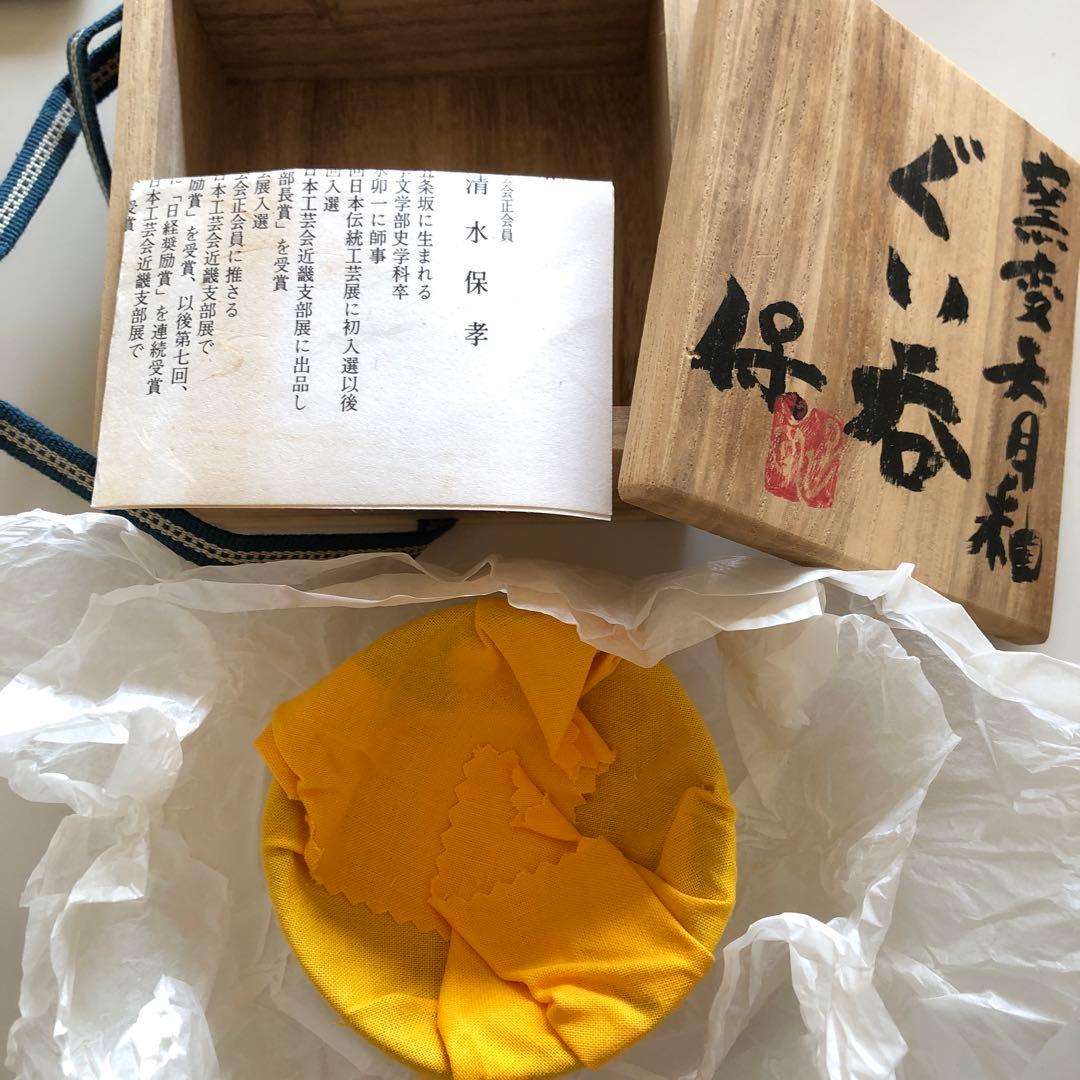 窯変天目釉
ぐい呑
保
会正会員
清水保孝
条坂に生まれる
文学部史学科卒
卯一に師事
回日本伝統工芸展に初入選以後
入選
日本工芸会近畿支部展に出品し
部長賞」を受賞
展入選
会正会員に推さる
日本工芸会近畿支部展で
励賞」を受賞、以後第七回、
に「日経奨励賞」を連続受賞
日本工芸会近畿支部展で
受賞